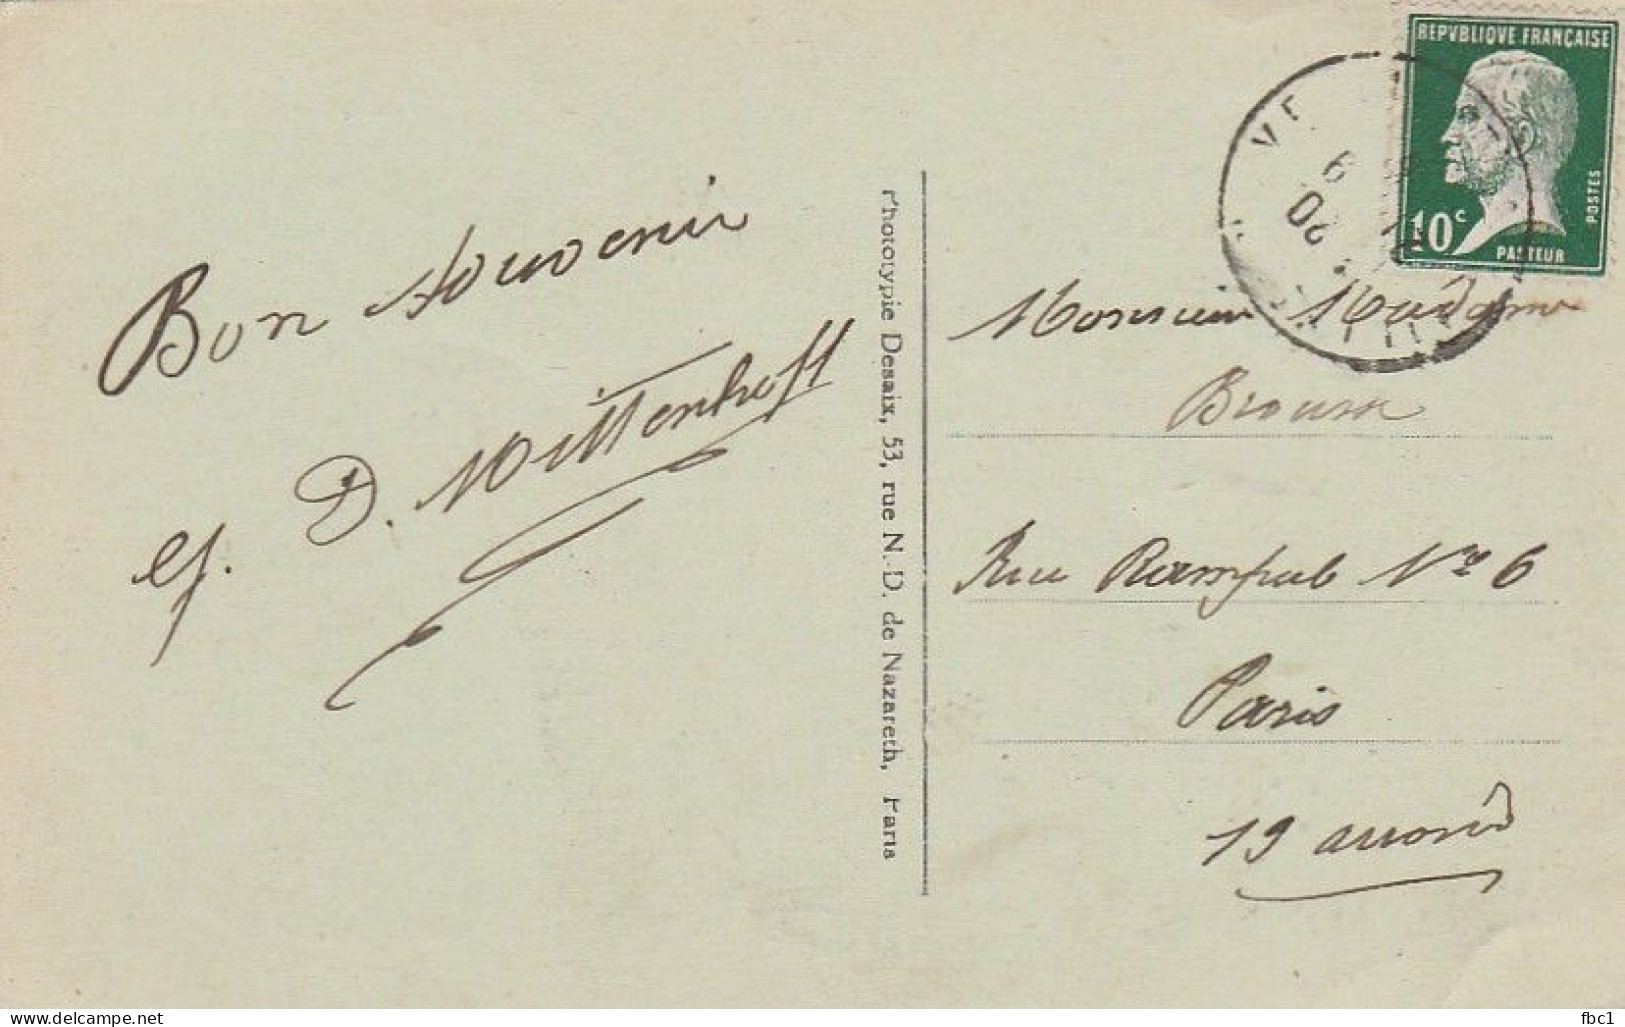 Bon souvenir
D. Mittenhoff
Phototypie Desaix, 53, rue N.-D. de Nazareth, Paris
REPVBLIQVE FRANÇAISE
POSTES
10c
PASTEUR
Monsieur Madame
Rue Rampal No 6
Paris
19 arrond
www.delcampe.net
fbc1